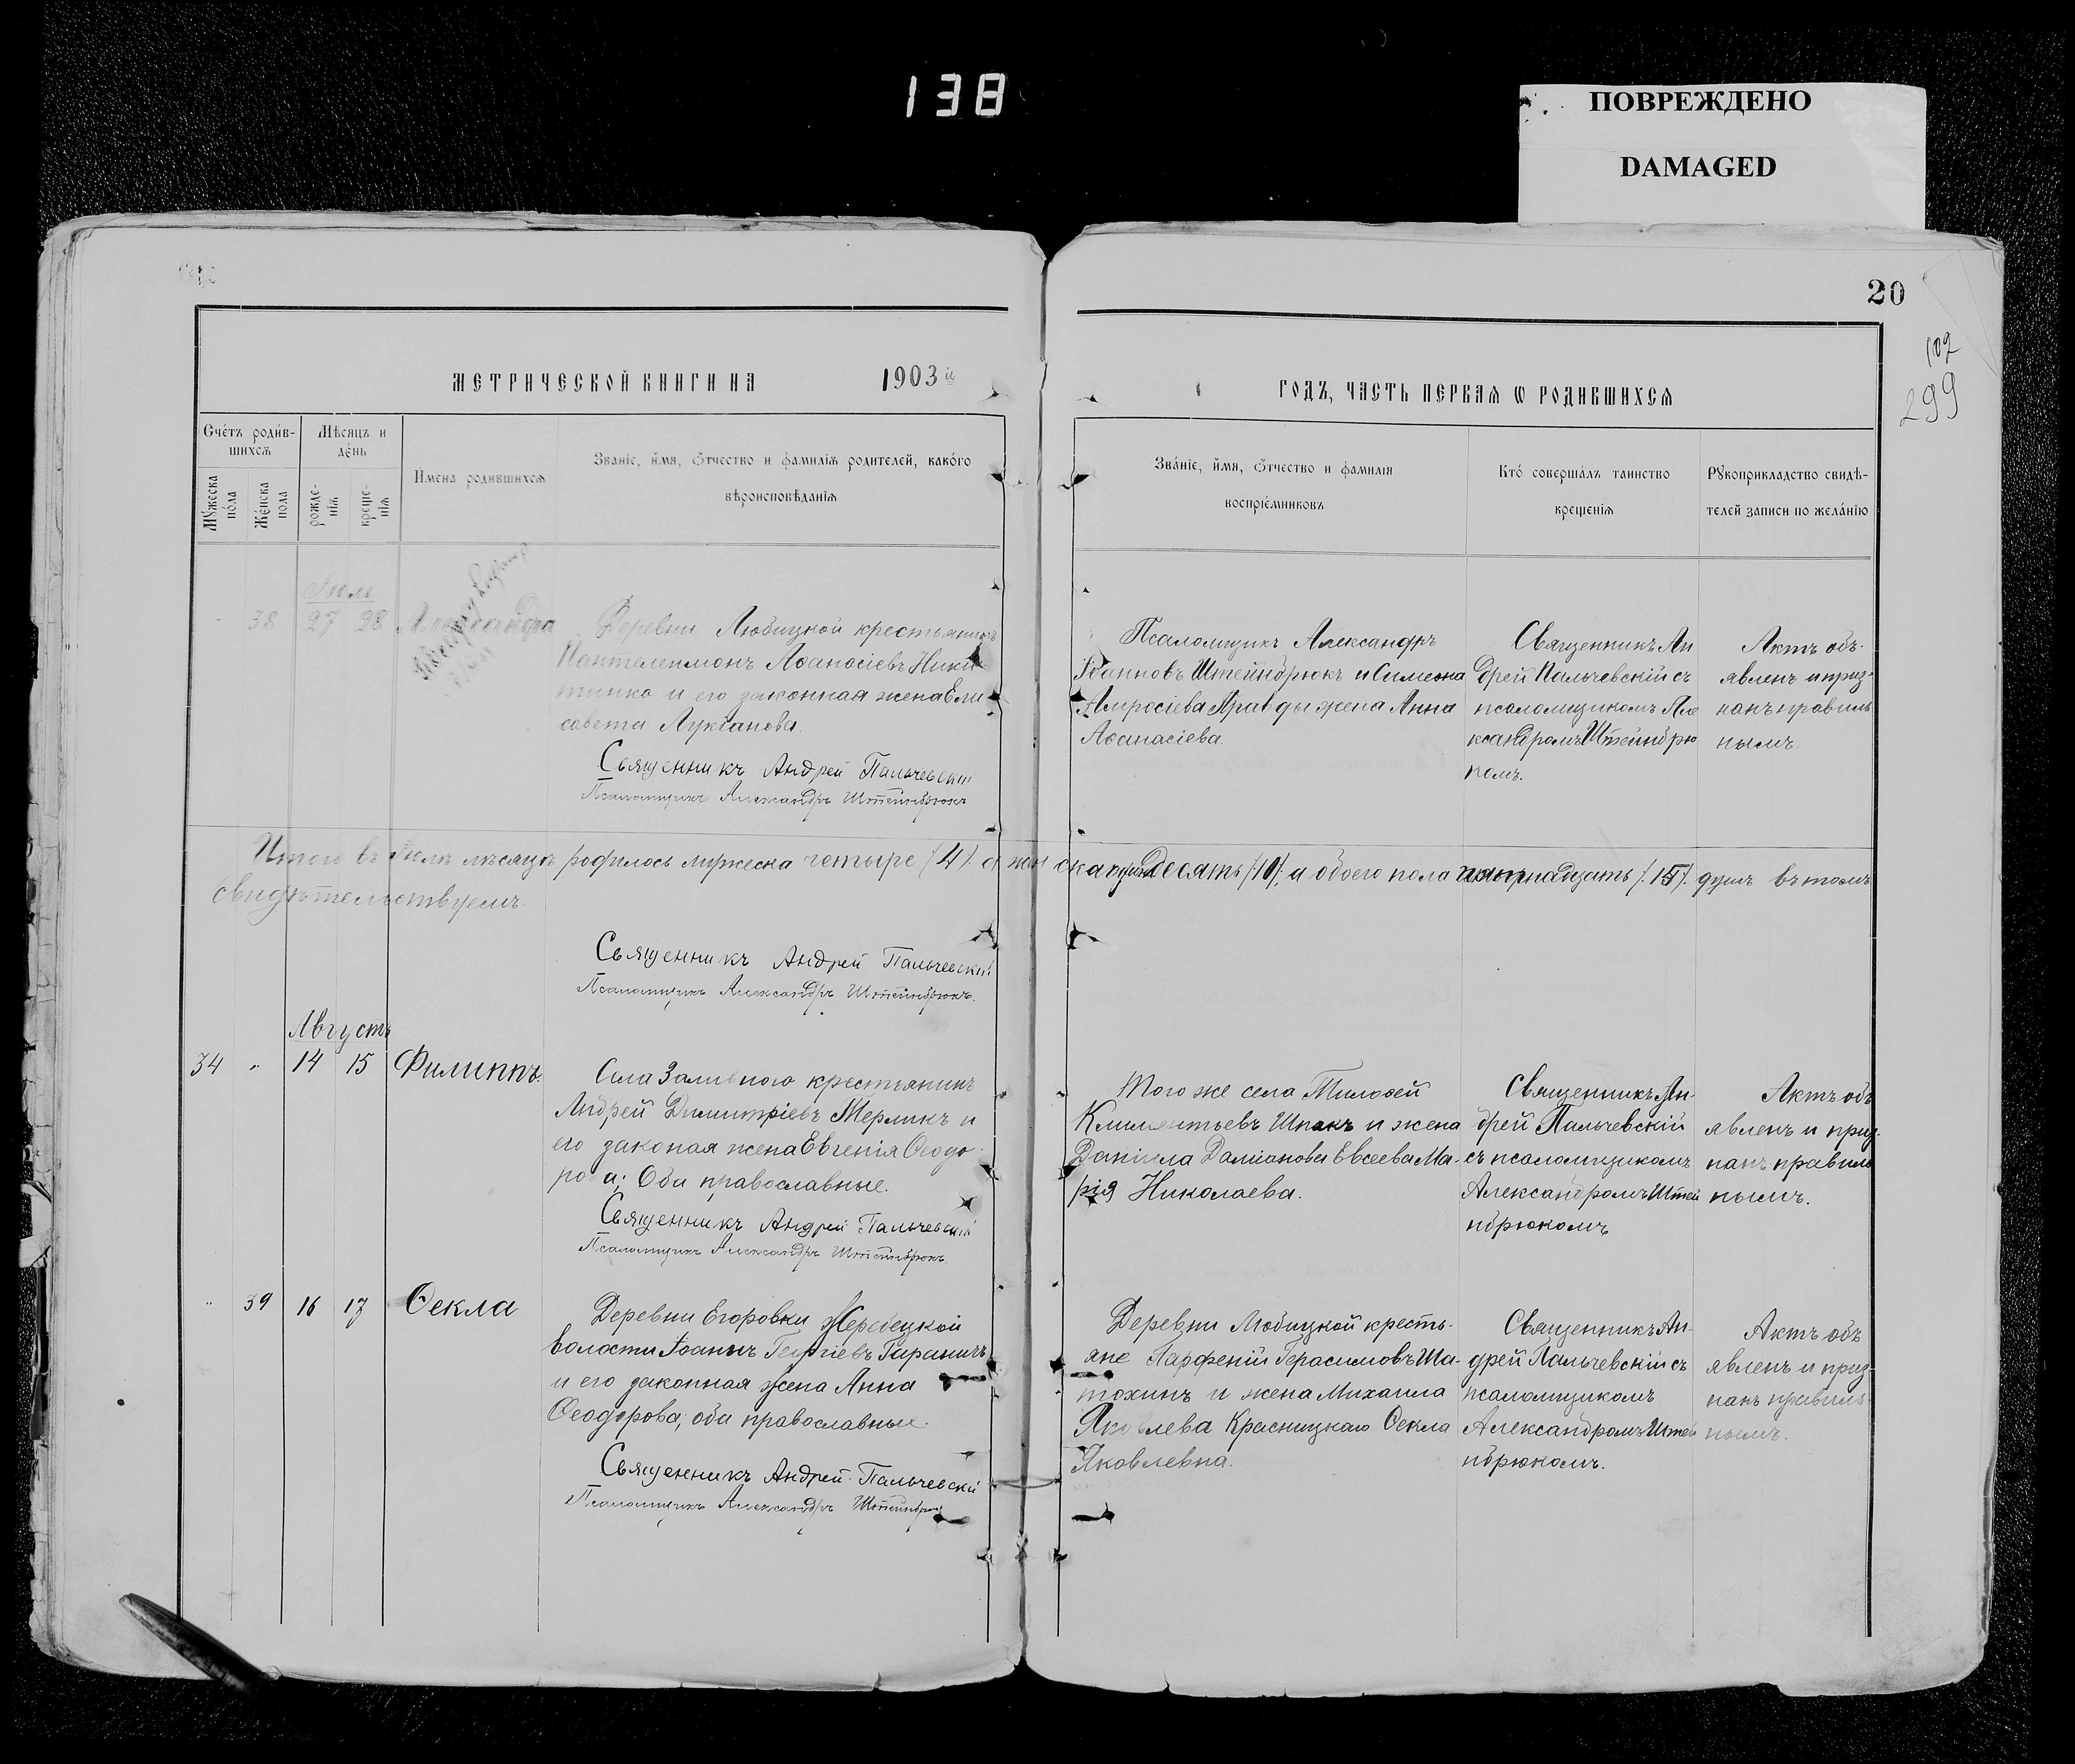 138
ПОВРЕЖДЕНО
DAMAGED
20
102
299
МЕТРИЧЕСКОЙ КНИГИ НА 1903й
ГОДЪ, ЧАСТЬ ПЕРВАѦ Ѡ РОДИВШИХСѦ
Счётъ родив-
шихсѧ
Мужеска пола
Женска пола
Мѣсяцъ и
день
рожде-
нїѧ
креще-
нїѧ
Имена родившихсѧ
Званїе, имя, Ѻтчество и фамилїѧ родителей, какого
вѣроисповѣданїѧ
Званїе, имя, Ѻтчество и фамилїя
воспрїемниковъ
Кто совершалъ таинство
крещенїѧ
Рꙋкоприкладство свидѣ-
телей записи по желанїю
Іюль
38 27 28 Александра
Деревни Любицкой крестьянинъ
Пантелеимонъ Аѳанасіевъ Ники-
тинко и его законная жена Ели
савета Лукіанова.
Священникъ Андрей Пальчевскій
Псаломщикъ Александръ Штейнбрюкъ
Псаломщикъ Александръ
Іоанновъ Штейнбрюкъ и Симеона
Амвросіева Правды жена Анна
Аѳанасіева.
Священникъ Ан
дрей Пальчевскій съ
псаломщикомъ Але
ксандромъ Штейнбрю
комъ.
Актъ объ-
явленъ и приз-
нанъ правиль
нымъ.
Итого въ Іюлѣ мѣсяцѣ родилось мужеска четыре /4/. а женска десять а обоего пола пятнадцать /.15/. душъ въ томъ
свидѣтельствуемъ.
Священникъ Андрей Пальчевскій
Псаломщикъ Александръ Штейнбрюкъ.
Августъ
34 " 14 15 Филиппъ.
Села Заливного крестьянинъ
Андрей Димитріевъ Терликъ и
его законая жена Евгенія Ѳеодо-
рова; Оба православные.
Священникъ Андрей Пальчевскій
Псаломщикъ Александръ Штейнбрюкъ
Того же села Тимоѳей
Климентьевъ Шпакъ и жена
Даніила Даміанова Евсеева Ма-
рія Николаева.
Священникъ Ан-
дрей Пальчевскій
съ псаломщикомъ
Александромъ Штей
нбрюкомъ
Актъ объ
явленъ и приз-
нанъ правиль
нымъ.
" 39 16 17 Ѳекла
Деревни Егоровки Жеребецкой
волости Іоаннъ Георгіевъ Гираничъ
и его законная жена Анна
Ѳеодорова; оба православные.
Священникъ Андрей Пальчевскій
Псаломщикъ Александръ Штейнбрюкъ
Деревни Любицкой кресть-
яне Парфеній Герасимовъ Ша-
тохинъ и жена Михаила
Яковлева Красницкаго Ѳекла
Яковлевна.
Священникъ Ан-
дрей Пальчевскій съ
псаломщикомъ
Александромъ Штей
нбрюкомъ.
Актъ объ
явленъ и приз-
нанъ правиль
нымъ.